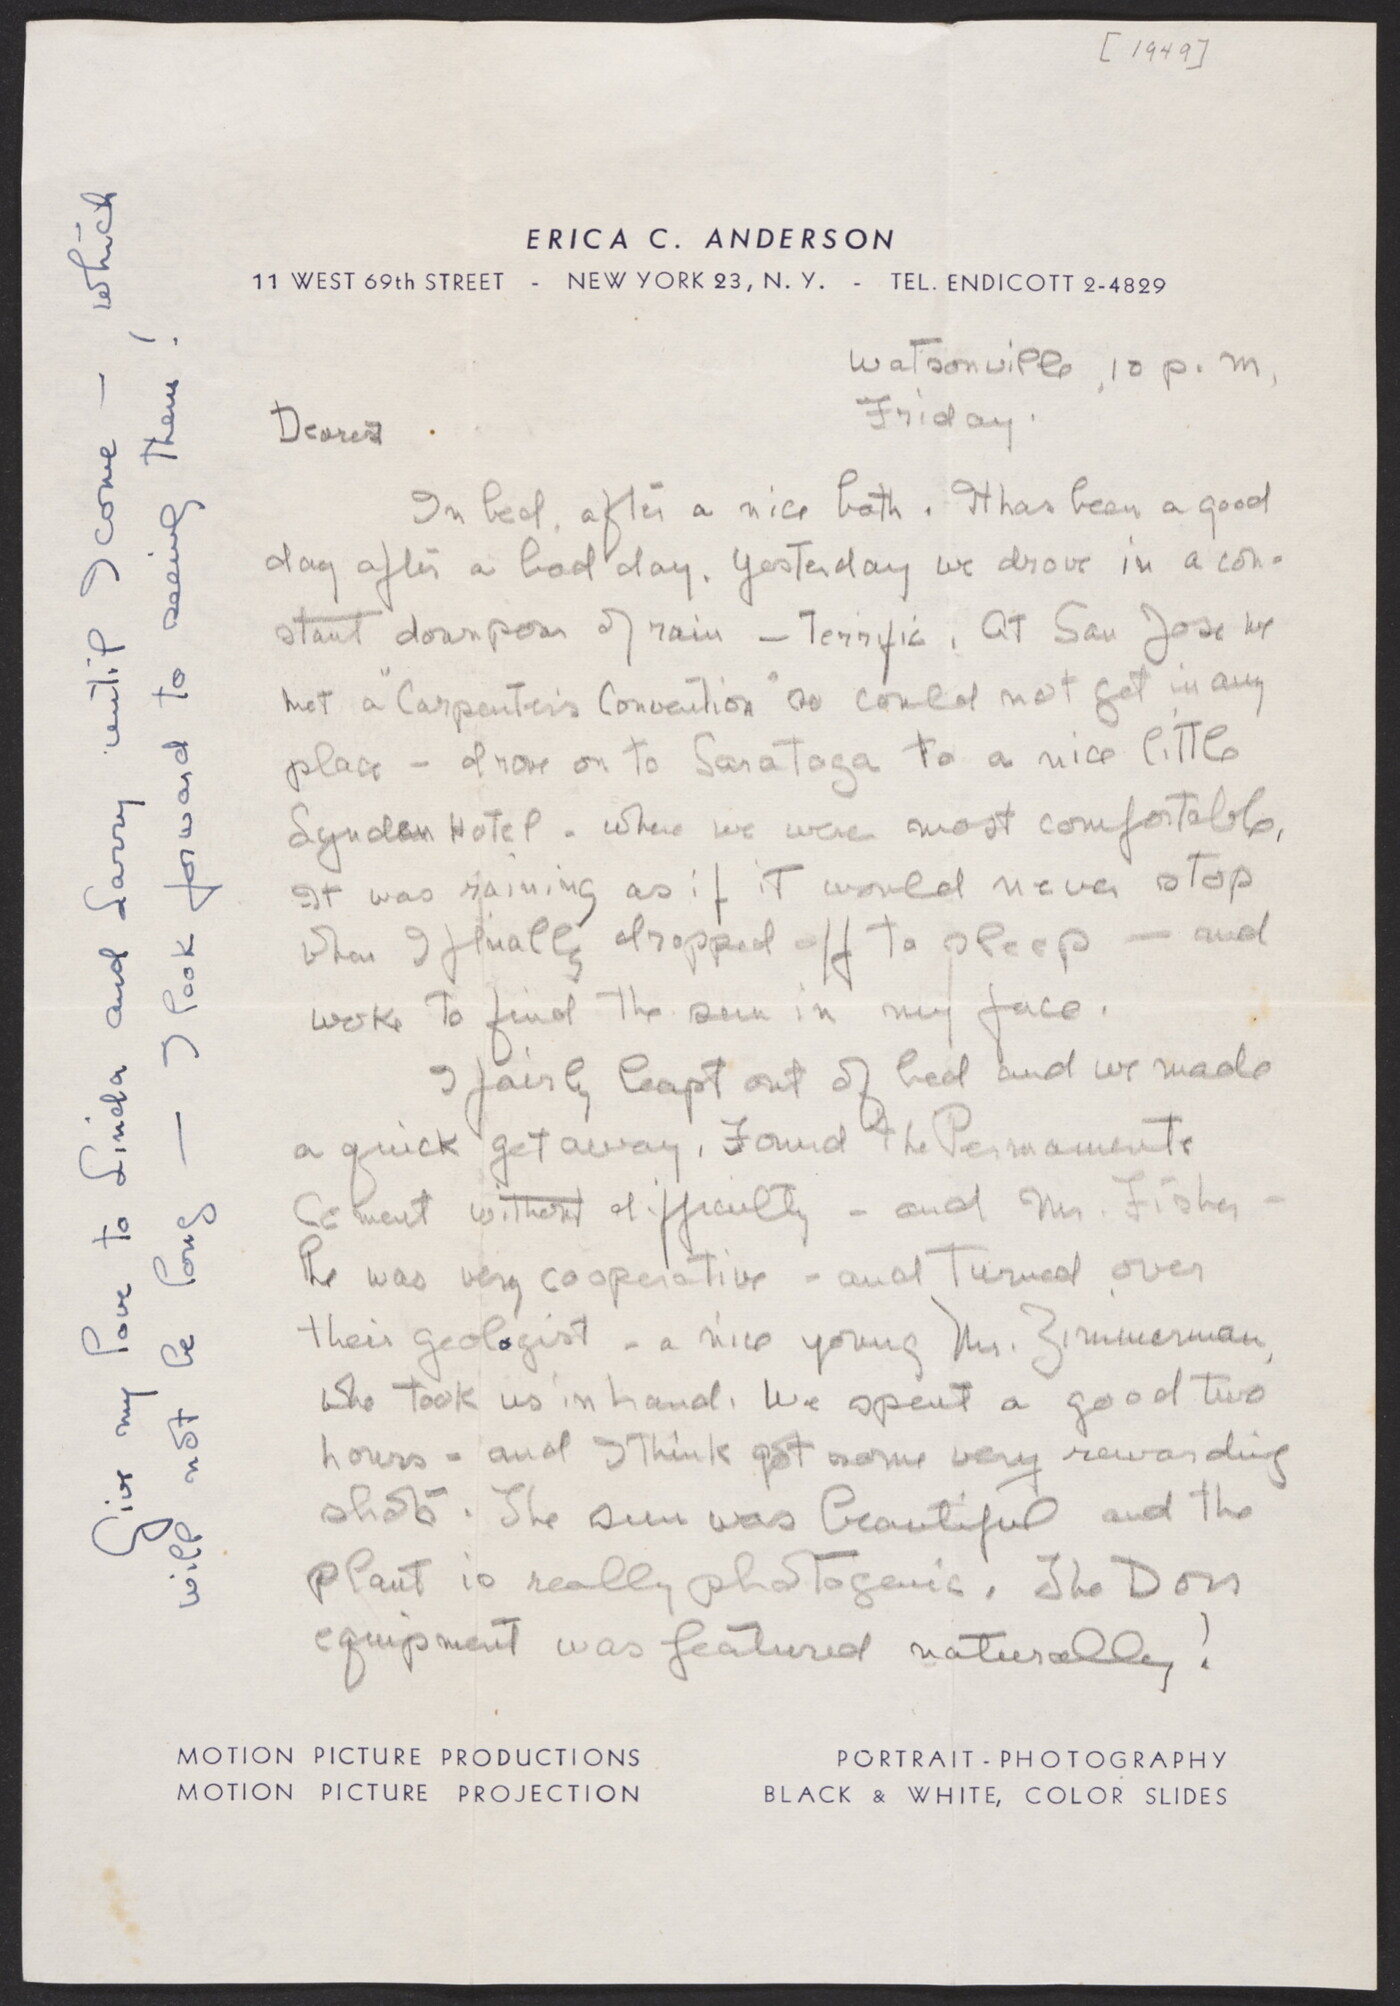 [1949]
ERICA C. ANDERSON
11 WEST 69th STREET - NEW YORK 23, N. Y. - TEL. ENDICOTT 2-4829
Watsonville, 10 p. m,
Friday.
Dearest
In bed, after a nice bath. It has been a good
day after a bad day. Yesterday we drove in a con-
stant downpour of rain – Terrific. At San Jose we
met a "Carpenter's Convention" so could not get in any
place – drove on to Saratoga to a nice little
Lyndon Hotel - where we were most comfortable,
It was raining as if it would never stop
when I finally dropped off to sleep — and
woke to find the sun in my face.
I fairly leapt out of bed and we made
a quick get away. Found the Permanente
Cement without difficulty - and Mr. Fisher -
he was very cooperative - and turned over
their geologist - a nice young Mr. Zimmerman,
who took us in hand. We spent a good two
hours - and I think got some very rewarding
shots. The sun was beautiful and the
plant is really photogenic. The Dorr
equipment was featured naturally!
MOTION PICTURE PRODUCTIONS PORTRAIT-PHOTOGRAPHY
MOTION PICTURE PROJECTION BLACK & WHITE, COLOR SLIDES
Give my love to Linda and Larry until I come — which
will not be long — I look forward to seeing them!